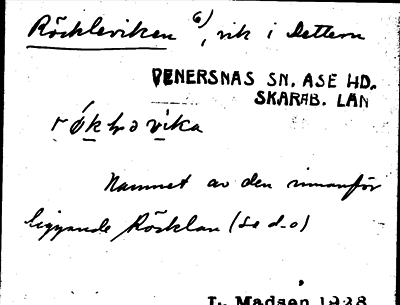 Röckleviken 6), vik i Dettern
VENERSNAS SN. ASE HD.
SKARAB. LAN
Namnet av den innanför
liggande Röcklan (se d.o)
L. Madsen 1928